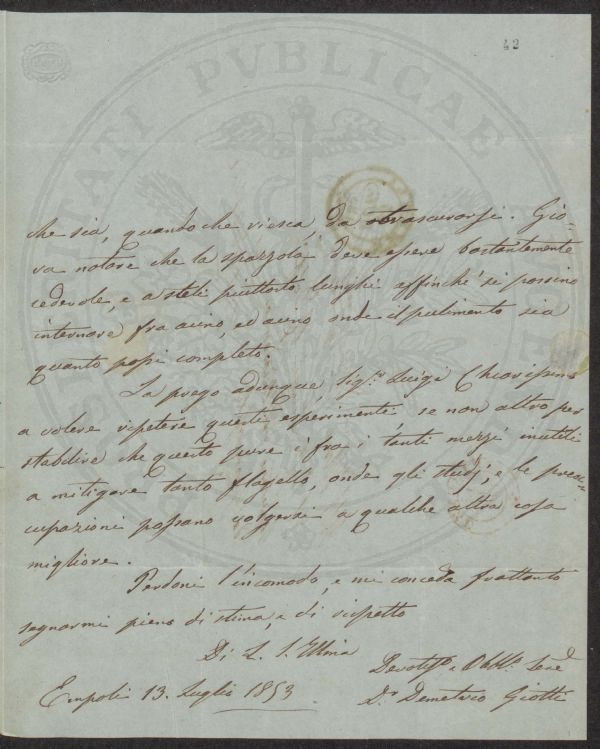 42
che sia, quando che riesca, da trascurarsi. Gio-
va notare che la spazzola deve essere bastantemente
cedevole, e a steli piuttosto lunghi affinchè si possino
internare fra acino, ed acino onde il pulimento sia
quanto possi completo.
La prego adunque, Sig.r Luigi Chiarissimo
a volere ripetere questi esperimenti se non altro per
stabilire che questo pure è fra i tanti mezzi inutili
a mitigare tanto flagello, onde gli studj, e le preoc-
cupazioni possano volgersi a qualche altra cosa
migliore.
Perdoni l'incomodo, e mi conceda frattanto
segnarmi pieno di stima, e di rispetto
Di L. S. Illma
Devotiss.o Obbl.o Serv.e
Empoli 13. Luglio 1853
D.r Demetrio Giotti